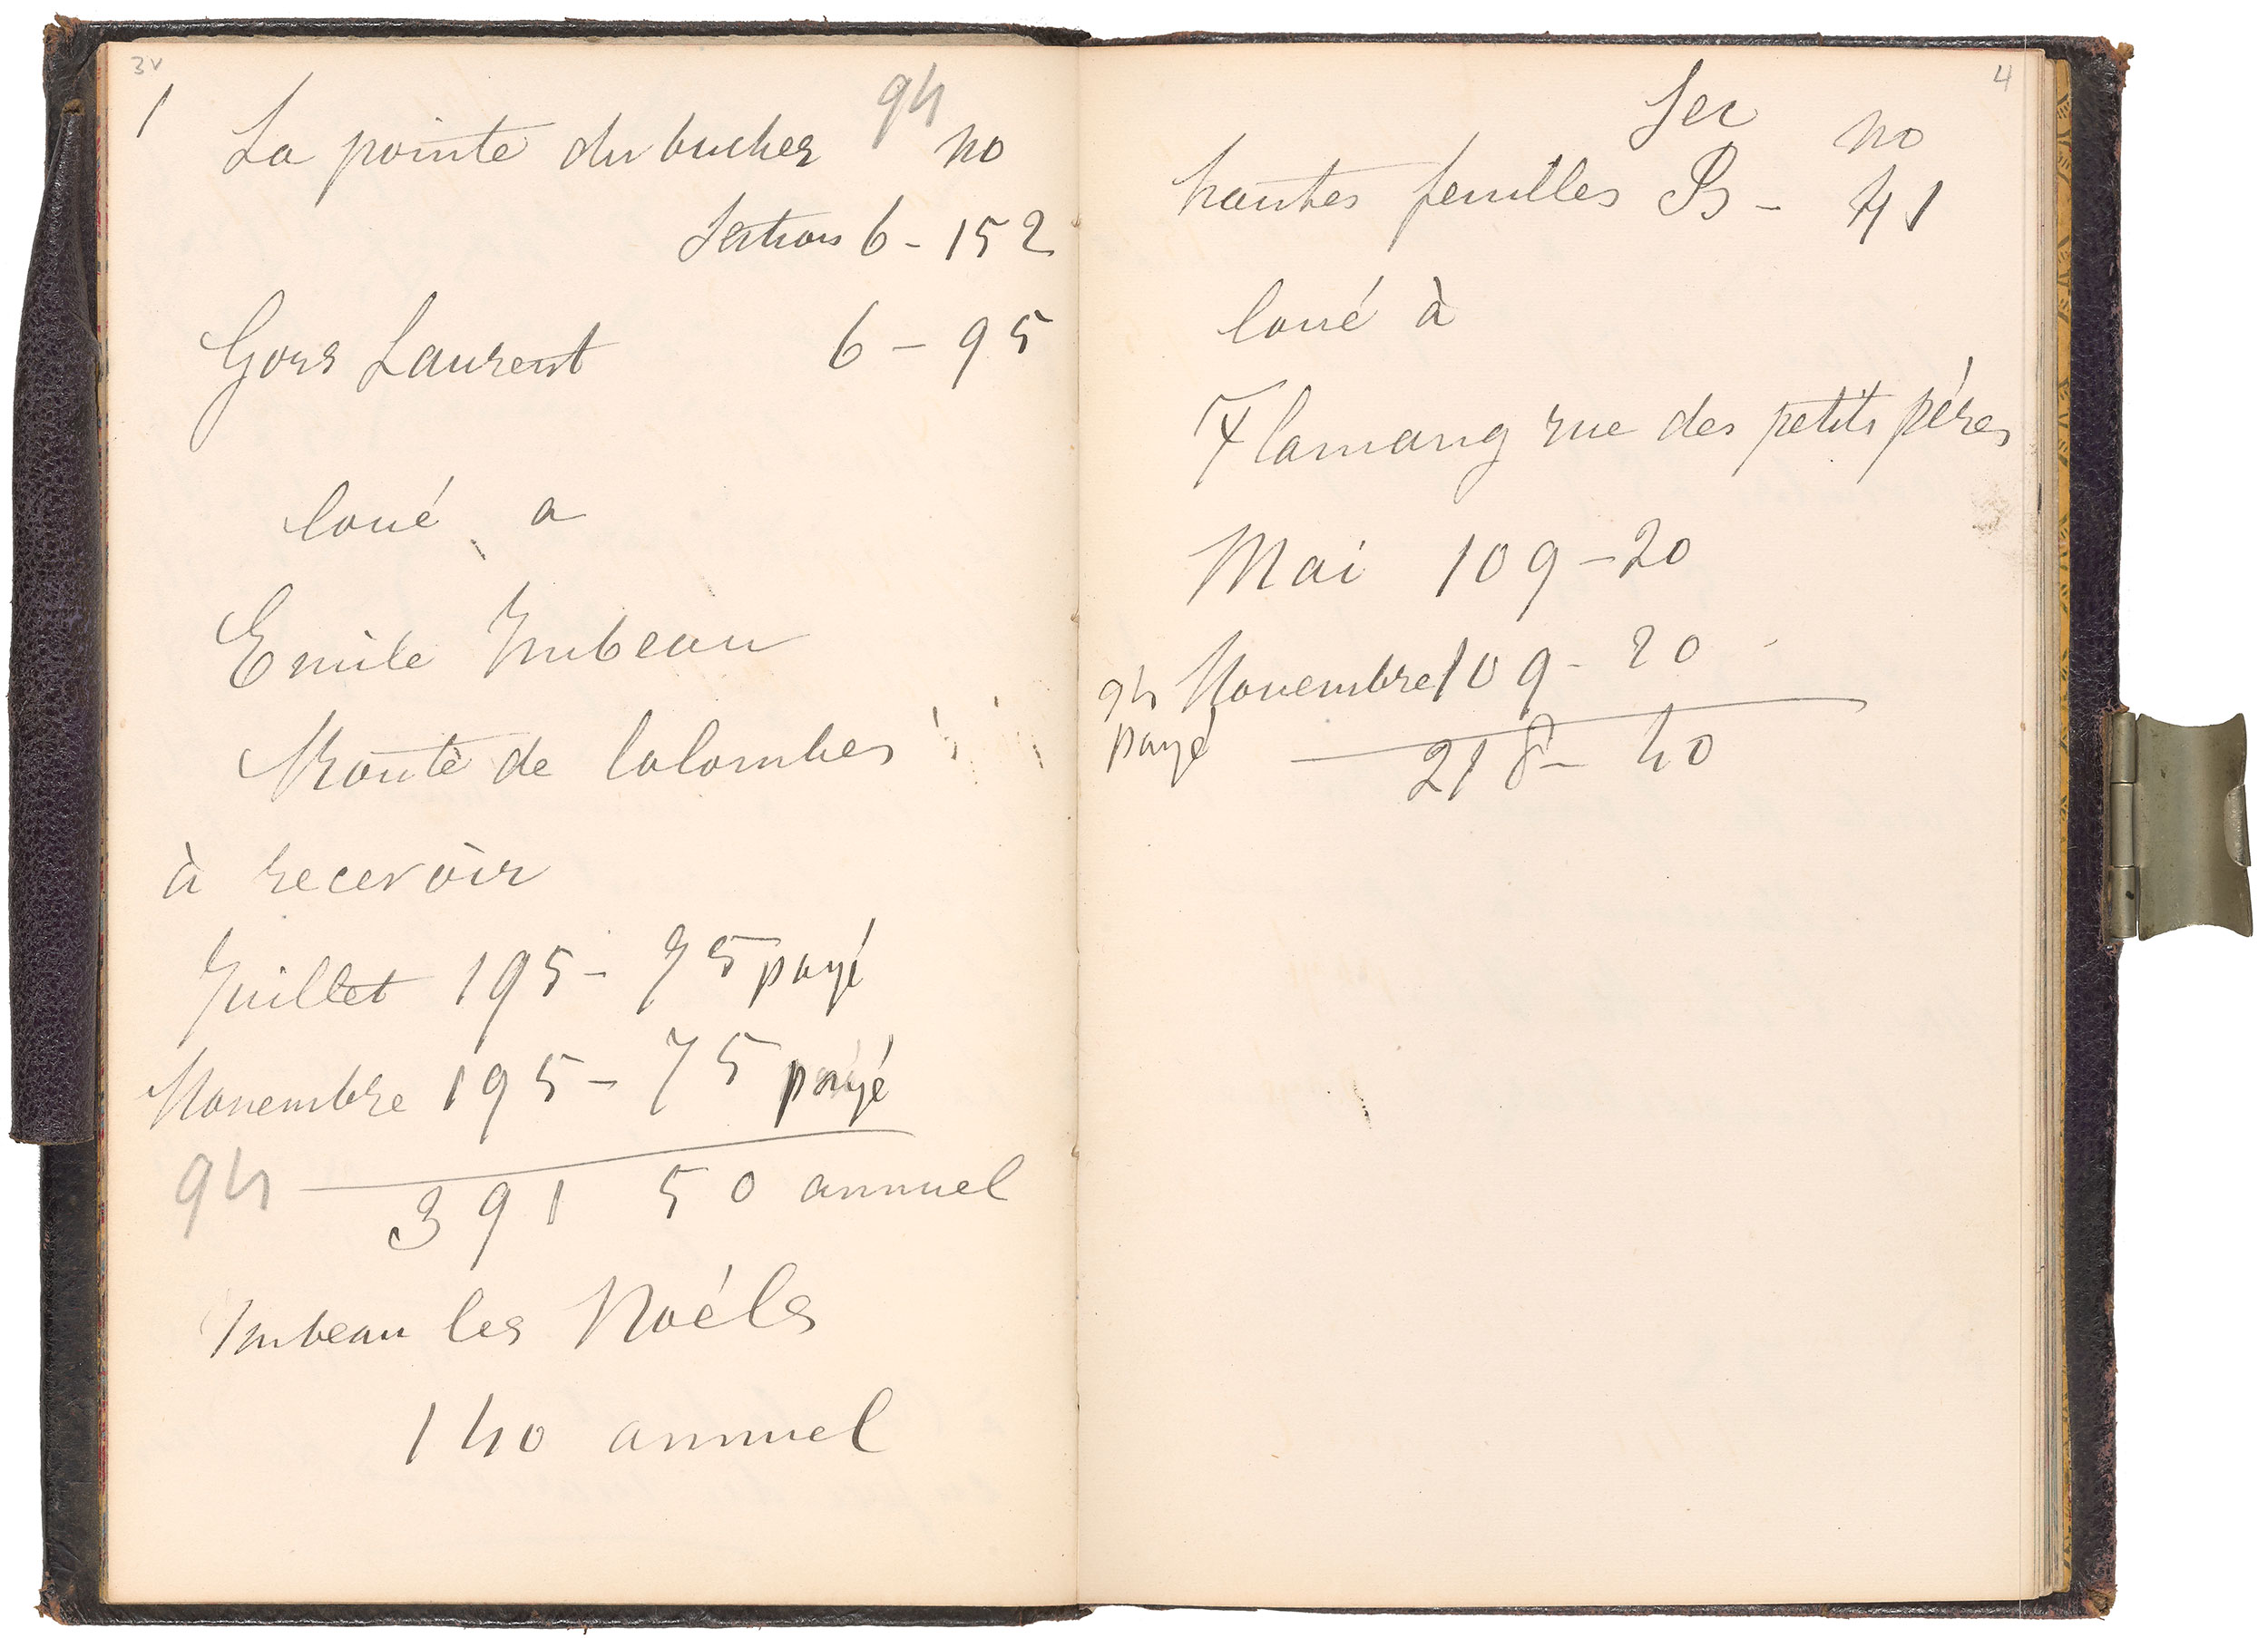 3v
1
94
La pointe du bucher no
Section 6 - 152
Gour Laurent 6 - 95
loué a
Emile Imbeau
Route de Colombes
à recevoir
Juillet 195 - 75 payé
Novembre 195 - 75 payé
94 391 50 annuel
Imbeau les Noéls
140 annuel
4
Sec no
hautes feuilles B - 41
loué à
Flamang rue des petits péres
Mai 109 - 20
94 Novembre 109 - 20
payé 218 - 40